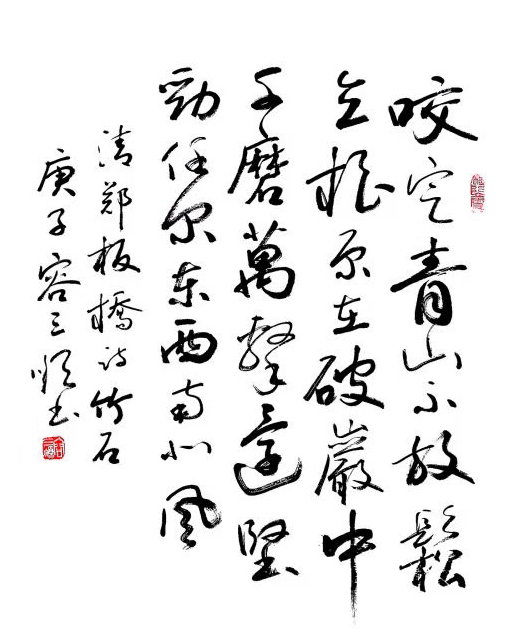 咬定青山不放鬆
立根原在破巖中
千磨萬擊還堅
勁任尔东西南北風
清鄭板橋诗竹石
庚子容三順书